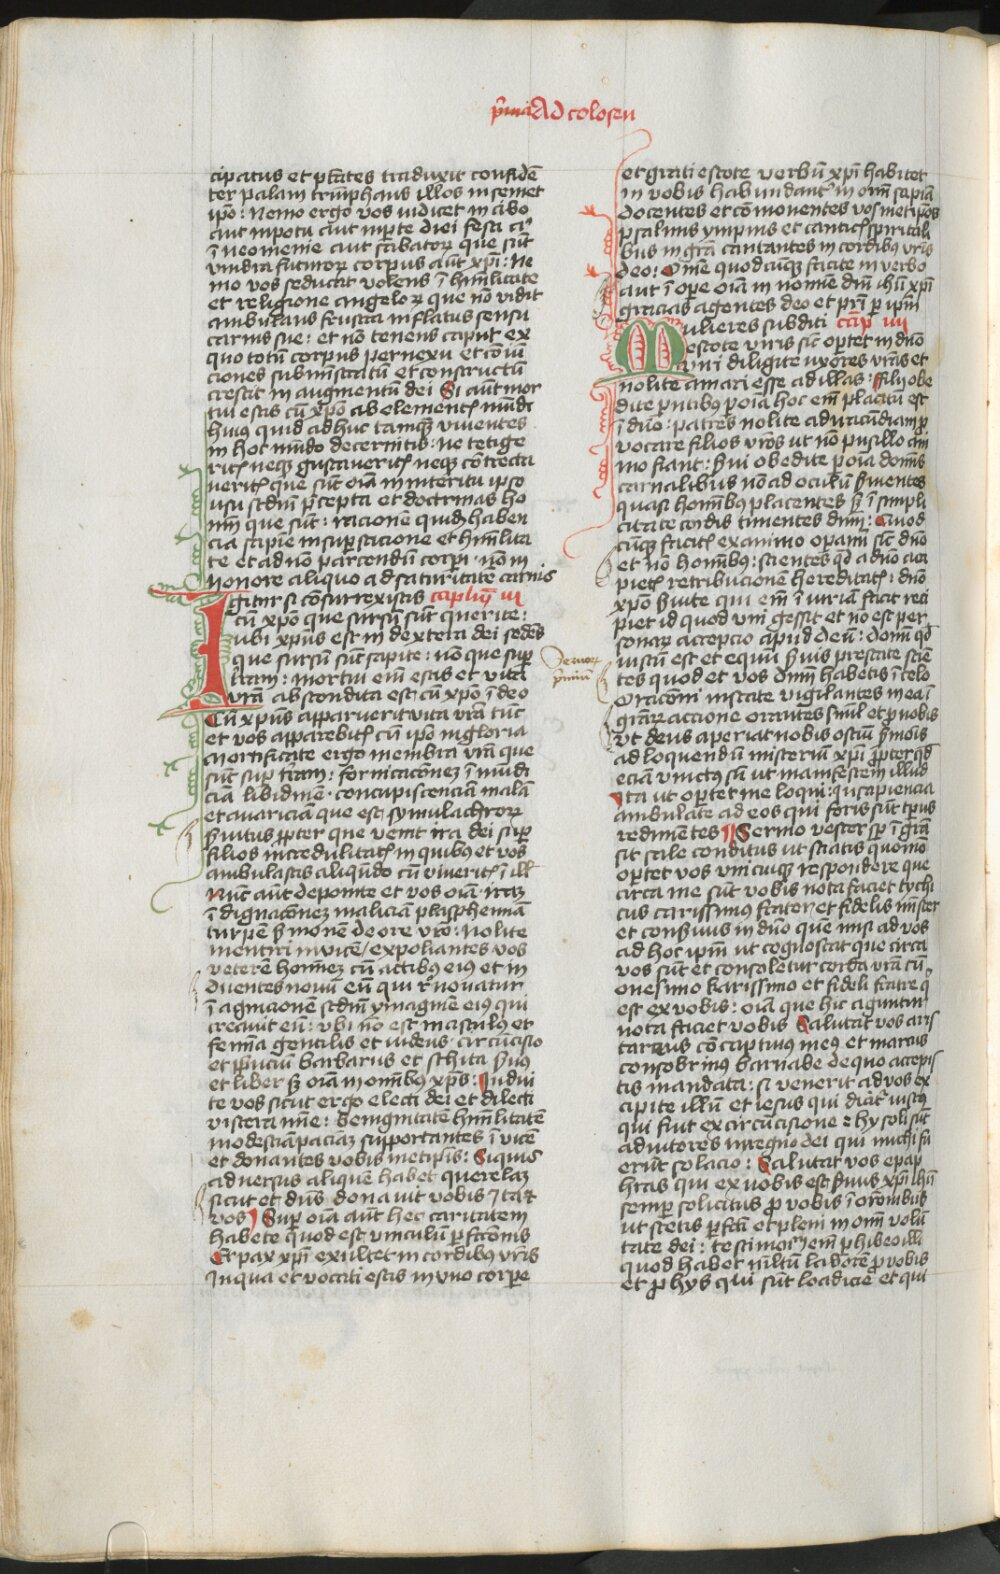 p̄ma Ad colosen
cipatus et ptātes traduxit confidē
ter palam triūphans illos in semet
ipō : Nemo ergo vos iudicet in cibo
aut in potu aut in pte diei festi aut
ī neomenie aut sabbatoꝝ que sūt
vmbra futuroꝝ corpus aūt xp̄i : Ne
mo vos seducat volens ī humilitate
et religione angeloꝝ que nō vidit
ambulans frustra inflatus sensu
carnis sue : et nō tenens caput ex
quo totū corpus per nexu et cōiū
ciones subministratū et constructū
crescit in augmentū dei Si aūt mor
tui estis cū xp̄o ab elementꝭ mūdi
huius quid adhuc tamqꝫ viuentes
in hoc mūdo decernitis : ne tetige
ritꝭ neqꝫ gustaueritꝭ neqꝫ cōtrecta
ueritꝭ que sūt oīa in interitu ipso
usu scdm p̄cepta et doctrinas ho
mīm que sūt : racionē quidē haben
cia sapiēcie in supersticione et humilita
te et ad nō parcendū corpī nō in
honore aliquo ad saturitatē carnis
Igitur si cōsurrexistis caplm̄ iii
cū xp̄o que sursū sūt querite :
ubi xp̄us est in dextera dei sedēs
que sursū sūt sapite : nō que sup
terram : mortui em̄ estis et vita
vrā abscondita est cū xp̄o ī deo
Cū xp̄us apparuerit vita vrā tūc
et vos apparebitꝭ cū ipō in gloria
Mortificate ergo membra vrā que
sūt sup trām : fornicaconeꝫ ī mūdi
ciā libidinē concupiscenciā malā
et auariciā que est symulachroꝝ
s̄uitus ꝓpter que venit ira dei sup
filios incredulitatꝭ in quibus et vos
ambulastis aliqn̄do cū viueritꝭ ī illꝭ
Nūc aūt deponite et vos oīa : iraꝫ
ī dignacōneꝫ maliciā plasphemiā
turpē s̄monē de ore vrō : nolite
mentiri inuicē / expoliantes vos
veterē homineꝫ cū actibus eius et in
duentes nouū eū qui renouatur
ī agnicionē scdm ymaginē eius qui
creauit eū : vbi nō est masculus et
femīa gentilis et iudeus circūcisio
et p̄puciū barbarus et schita s̄uus
et liber sꝫ oīa in omībus xp̄s : Indui
te vos sicut ergo electi dei et dilecti
viscera mīe : benignitatē humilitatē
modestiā paciaꝫ supportantes īuicē
et donantes vobis metipsis : Si quis
aduersus aliquē habet querelaꝫ
sicut et dn̄s donauit vobis ita et
vos Sup oīa aūt hec caritatem
habete quod est vinculū ꝑfectōnis
Et pax xp̄i exultet in cordibus vr̄is
In qua et vocati estis in vno corpe
et grati estote verbū xp̄i habitet
in vobis habundantꝰ in om̄i sapīa
docentes et cōmonentes vosmetipōs
psalmis ympnis et canticꝭ spirituali
bus in grā cantantes in cordibus vr̄is
deo : Om̄e quodcūqꝫ facite in verbo
aut ī ope oīa in nomīe dnī ihū xp̄i
gracias agentes deo et prī p ipm̄
Mulieres subditi cāp iiii
estote viris sic̄ optet in dn̄o
viri diligite uxōres vrās et
nolite amari esse ad illas : filii obe
dite pn̄tibus p oīa hoc em̄ placitū est
ī dn̄o : patres nolite ad iracūdiam ꝓ
vocare filios vr̄os ut nō pusillo ani
mo fiant : s̄ui obedite p oīa domīs
carnalibus nō ad oculū s̄uientes
quasi homībus placentes sꝫ ī simpli
citate cordis timentes dnm̄ : Quod
cūqꝫ facitꝭ ex animo operamī sic̄ dn̄o
et nō homībus : scientes qd a dn̄o acci
pietꝭ retribucionē hereditatꝭ : dn̄o
xp̄o s̄uite qui em̄ ī iuriā facit reci
piet id quod uni gessit et nō est per
sonaꝝ accepcio apud deū : Domī qd
iustū est et equū s̄uis prestate scie
tes quod et vos dnm̄ habetis ī celo
Oracōni instate vigilantes in ea ī
grāꝝ accione orantes simul et ꝓ nobis
ut deus aperiat nobis ostiū s̄monis
ad loquendū misteriū xp̄i ꝓpter qd
eciā vinctus sū ut manifestem illud
ita ut optet me loqui : in sapiencia
ambulate ad eos qui foris sūt tꝑus
redimētes Sermo vester sp ī grā
sit sale conditus ut sciatis quomō
optet vos vnicuiqꝫ respondere que
circa me sūt vobis nota faciet tychi
cus carissimus frater et fidelis mister
et conseruus in dn̄o quē misi ad vos
ad hoc ipm̄ ut cognoscat que circa
vos sūt et consoletur corda vrā cū
onesimo karissimo et fideli fratre q̄
est ex vobis : oīa que hic aguntur
nota faciet vobis Salutat vos aris
tarcus cōcaptiuus meus et marcus
consobrinus barnabe de quo accepis
tis mandata : si venerit ad vos ex
cipite illū et iesus qui dicitꝰ iustus
qui sūt ex circūcisione : hy soli sūt
adiutores in regno dei qui michi fu
erūt solacio : Salutat vos epap
hras qui ex vobis est s̄uus xp̄i ihū
semper solicitus ꝓ vobis ī orōnibus
ut stetis ꝑfectī et pleni in om̄i volū
tate dei : testimoniū em̄ phibeo illi
quod habet multū laborē ꝓ vobis
et ꝓ hys qui sūt loadicie et qui